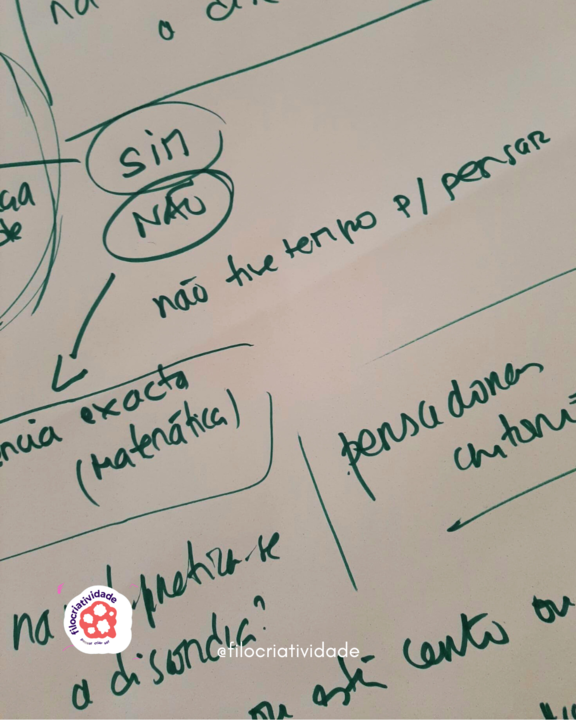 na
o
sim
NÃO
não tive tempo p/ pensar
ência exacta
(Matemática)
pensadores
na pratica-se
a discórdia?
ou está certo ou
filocriatividade
@filocriatividade